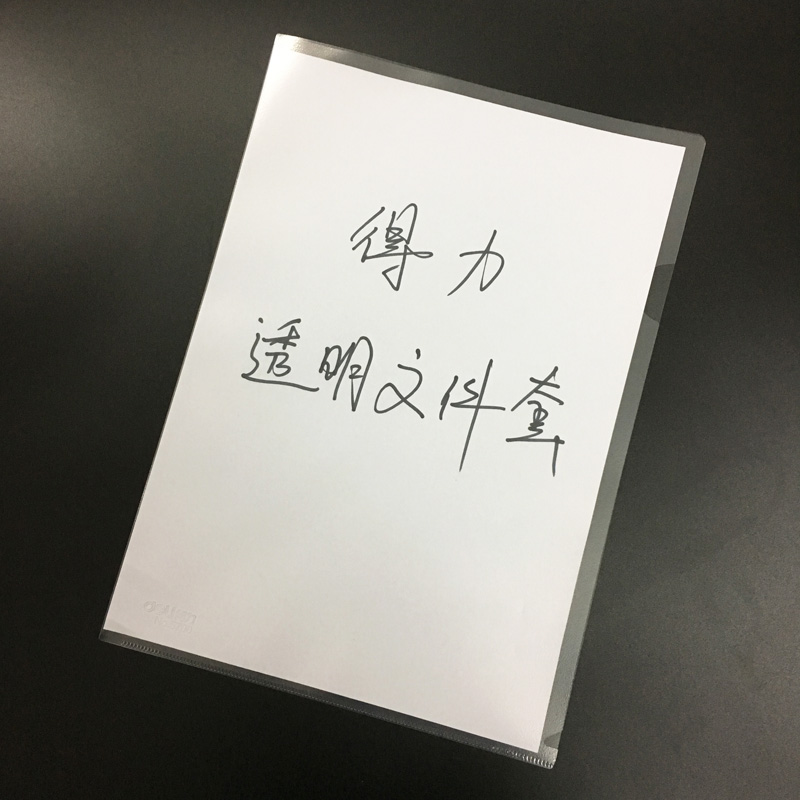 得力
透明文件套